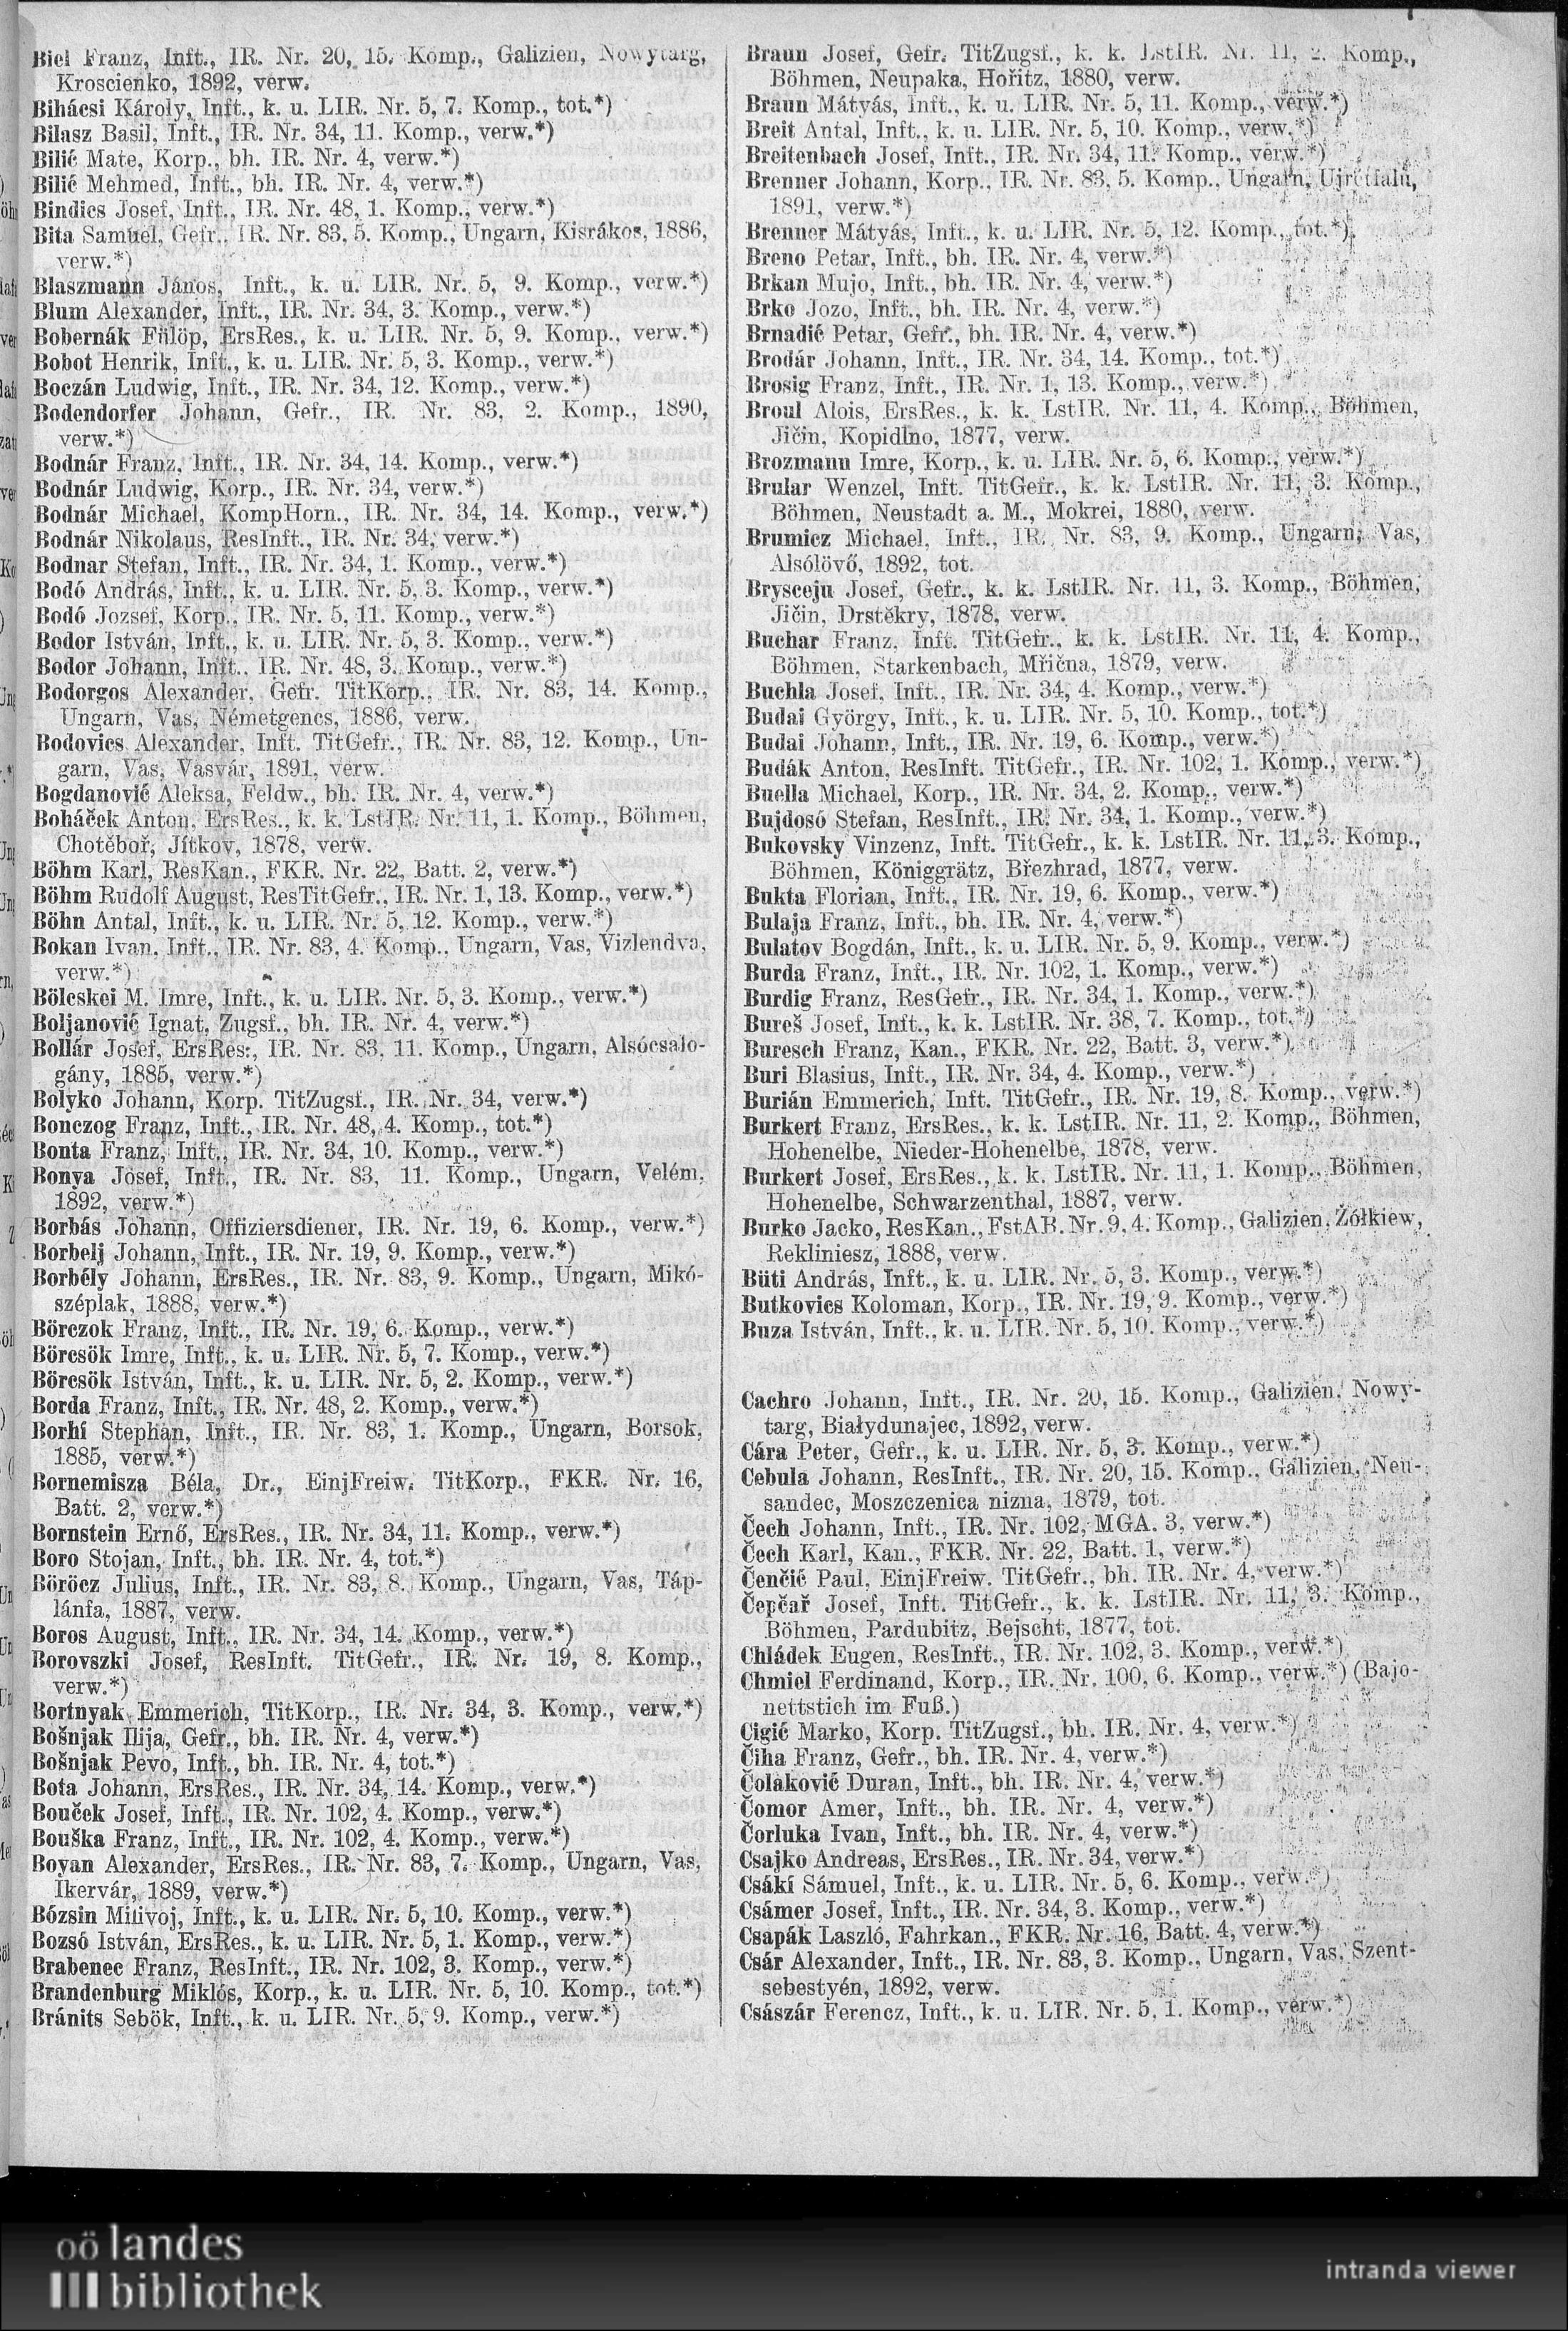 Biel Franz, Inft., IR. Nr. 20, 15. Komp., Galizien, Nowytarg,
Kroscienko, 1892, verw.
Bihácsi Károly, Inft., k. u. LIR. Nr. 5, 7. Komp., tot.*)
Bilasz Basil, Inft., IR. Nr. 34, 11. Komp., verw.*)
Bilić Mate, Korp., bh. IR. Nr. 4, verw.*)
Bilić Mehmed, Inft., bh. IR. Nr. 4, verw.*)
Bindics Josef, Inft., IR. Nr. 48, 1. Komp., verw.*)
Bita Samuel, Gefr., IR. Nr. 83, 5. Komp., Ungarn, Kisrákos, 1886,
verw.*)
Blaszmann János, Inft., k. u. LIR. Nr. 5, 9. Komp., verw.*)
Blum Alexander, Inft., IR. Nr. 34, 3. Komp., verw.*)
Bobernák Fülöp, ErsRes., k. u. LIR. Nr. 5, 9. Komp., verw.*)
Bobot Henrik, Inft., k. u. LIR. Nr. 5, 3. Komp., verw.*)
Boczán Ludwig, Inft., IR. Nr. 34, 12. Komp., verw.*)
Bodendorfer Johann, Gefr., IR. Nr. 83, 2. Komp., 1890,
verw.*)
Bodnár Franz, Inft., IR. Nr. 34, 14. Komp., verw.*)
Bodnár Ludwig, Korp., IR. Nr. 34, verw.*)
Bodnár Michael, KompHorn., IR. Nr. 34, 14. Komp., verw.*)
Bodnár Nikolaus, ResInft., IR. Nr. 34, verw.*)
Bodnar Stefan, Inft., IR. Nr. 34, 1. Komp., verw.*)
Bodó András, Inft., k. u. LIR. Nr. 5, 3. Komp., verw.*)
Bodó Jozsef, Korp., IR. Nr. 5, 11. Komp., verw.*)
Bodor István, Inft., k. u. LIR. Nr. 5, 3. Komp., verw.*)
Bodor Johann, Inft., IR. Nr. 48, 3. Komp., verw.*)
Bodorgos Alexander, Gefr. TitKorp., IR. Nr. 83, 14. Komp.,
Ungarn, Vas, Németgencs, 1886, verw.
Bodovics Alexander, Inft. TitGefr., IR. Nr. 83, 12. Komp., Un-
garn, Vas, Vasvár, 1891, verw.
Bogdanović Aleksa, Feldw., bh. IR. Nr. 4, verw.*)
Boháček Anton, ErsRes., k. k. LstIR. Nr. 11, 1. Komp., Böhmen,
Chotěboř, Jítkov, 1878, verw.
Böhm Karl, ResKan., FKR. Nr. 22, Batt. 2, verw.*)
Böhm Rudolf August, ResTitGefr., IR. Nr. 1, 13. Komp., verw.*)
Böhn Antal, Inft., k. u. LIR. Nr. 5, 12. Komp., verw.*)
Bokan Ivan, Inft., IR. Nr. 83, 4. Komp., Ungarn, Vas, Vizlendva,
verw.*)
Bölcskei M. Imre, Inft., k. u. LIR. Nr. 5, 3. Komp., verw.*)
Boljanović Ignat, Zugsf., bh. IR. Nr. 4, verw.*)
Bollár Josef, ErsRes., IR. Nr. 83, 11. Komp., Ungarn, Alsócsalo-
gány, 1885, verw.*)
Bolyko Johann, Korp. TitZugsf., IR. Nr. 34, verw.*)
Bonczog Franz, Inft., IR. Nr. 48, 4. Komp., tot.*)
Bonta Franz, Inft., IR. Nr. 34, 10. Komp., verw.*)
Bonya Josef, Inft., IR. Nr. 83, 11. Komp., Ungarn, Velém,
1892, verw.*)
Borbás Johann, Offiziersdiener, IR. Nr. 19, 6. Komp., verw.*)
Borbelj Johann, Inft., IR. Nr. 19, 9. Komp., verw.*)
Borbély Johann, ErsRes., IR. Nr. 83, 9. Komp., Ungarn, Mikó-
széplak, 1888, verw.*)
Börczok Franz, Inft., IR. Nr. 19, 6. Komp., verw.*)
Börcsök Imre, Inft., k. u. LIR. Nr. 5, 7. Komp., verw.*)
Börcsök István, Inft., k. u. LIR. Nr. 5, 2. Komp., verw.*)
Borda Franz, Inft., IR. Nr. 48, 2. Komp., verw.*)
Borhi Stephan, Inft., IR. Nr. 83, 1. Komp., Ungarn, Borsok,
1885, verw.*)
Bornemisza Béla, Dr., EinjFreiw. TitKorp., FKR. Nr. 16,
Batt. 2, verw.*)
Bornstein Ernő, ErsRes., IR. Nr. 34, 11. Komp., verw.*)
Boro Stojan, Inft., bh. IR. Nr. 4, tot.*)
Böröcz Julius, Inft., IR. Nr. 83, 8. Komp., Ungarn, Vas, Táp-
lánfa, 1887, verw.
Boros August, Inft., IR. Nr. 34, 14. Komp., verw.*)
Borovszki Josef, ResInft. TitGefr., IR. Nr. 19, 8. Komp.,
verw.*)
Bortnyak Emmerich, TitKorp., IR. Nr. 34, 3. Komp., verw.*)
Bošnjak Ilija, Gefr., bh. IR. Nr. 4, verw.*)
Bošnjak Pevo, Inft., bh. IR. Nr. 4, tot.*)
Bota Johann, ErsRes., IR. Nr. 34, 14. Komp., verw.*)
Bouček Josef, Inft., IR. Nr. 102, 4. Komp., verw.*)
Bouška Franz, Inft., IR. Nr. 102, 4. Komp., verw.*)
Bovan Alexander, ErsRes., IR. Nr. 83, 7. Komp., Ungarn, Vas,
Ikervár, 1889, verw.*)
Bózsin Milivoj, Inft., k. u. LIR. Nr. 5, 10. Komp., verw.*)
Bozsó István, ErsRes., k. u. LIR. Nr. 5, 1. Komp., verw.*)
Brabenec Franz, ResInft., IR. Nr. 102, 3. Komp., verw.*)
Brandenburg Miklós, Korp., k. u. LIR. Nr. 5, 10. Komp., tot.*)
Bránits Sebök, Inft., k. u. LIR. Nr. 5, 9. Komp., verw.*)
Braun Josef, Gefr. TitZugsf., k. k. LstIR. Nr. 11, 2. Komp.,
Böhmen, Neupaka, Hořitz, 1880, verw.
Braun Mátyás, Inft., k. u. LIR. Nr. 5, 11. Komp., verw.*)
Breit Antal, Inft., k. u. LIR. Nr. 5, 10. Komp., verw.*)
Breitenbach Josef, Inft., IR. Nr. 34, 11. Komp., verw.*)
Brenner Johann, Korp., IR. Nr. 83, 5. Komp., Ungarn, Ujrétfalu,
1891, verw.*)
Brenner Mátyás, Inft., k. u. LIR. Nr. 5, 12. Komp., tot.*)
Breno Petar, Inft., bh. IR. Nr. 4, verw.*)
Brkan Mujo, Inft., bh. IR. Nr. 4, verw.*)
Brko Jozo, Inft., bh. IR. Nr. 4, verw.*)
Brnadić Petar, Gefr., bh. IR. Nr. 4, verw.*)
Brodár Johann, Inft., IR. Nr. 34, 14. Komp., tot.*)
Brosig Franz, Inft., IR. Nr. 1, 13. Komp., verw.*)
Broul Alois, ErsRes., k. k. LstIR. Nr. 11, 4. Komp., Böhmen,
Jičin, Kopidlno, 1877, verw.
Brozmann Imre, Korp., k. u. LIR. Nr. 5, 6. Komp., verw.*)
Brular Wenzel, Inft. TitGefr., k. k. LstIR. Nr. 11, 3. Komp.,
Böhmen, Neustadt a. M., Mokrei, 1880, verw.
Brumicz Michael, Inft., IR. Nr. 83, 9. Komp., Ungarn, Vas,
Alsólövő, 1892, tot.
Brysceju Josef, Gefr., k. k. LstIR. Nr. 11, 3. Komp., Böhmen,
Jičin, Drstěkry, 1878, verw.
Buchar Franz, Inft. TitGefr., k. k. LstIR. Nr. 11, 4. Komp.,
Böhmen, Starkenbach, Mřična, 1879, verw.
Buchla Josef, Inft., IR. Nr. 34, 4. Komp., verw.*)
Budai György, Inft., k. u. LIR. Nr. 5, 10. Komp., tot.*)
Budai Johann, Inft., IR. Nr. 19, 6. Komp., verw.*)
Budák Anton, ResInft. TitGefr., IR. Nr. 102, 1. Komp., verw.*)
Buella Michael, Korp., IR. Nr. 34, 2. Komp., verw.*)
Bujdosó Stefan, ResInft., IR. Nr. 34, 1. Komp., verw.*)
Bukovsky Vinzenz, Inft. TitGefr., k. k. LstIR. Nr. 11, 3. Komp.,
Böhmen, Königgrätz, Březhrad, 1877, verw.
Bukta Florian, Inft., IR. Nr. 19, 6. Komp., verw.*)
Bulaja Franz, Inft., bh. IR. Nr. 4, verw.*)
Bulatov Bogdán, Inft., k. u. LIR. Nr. 5, 9. Komp., verw.*)
Burda Franz, Inft., IR. Nr. 102, 1. Komp., verw.*)
Burdig Franz, ResGefr., IR. Nr. 34, 1. Komp., verw.*)
Bureš Josef, Inft., k. k. LstIR. Nr. 38, 7. Komp., tot.*)
Buresch Franz, Kan., FKR. Nr. 22, Batt. 3, verw.*)
Buri Blasius, Inft., IR. Nr. 34, 4. Komp., verw.*)
Burián Emmerich, Inft. TitGefr., IR. Nr. 19, 8. Komp., verw.*)
Burkert Franz, ErsRes., k. k. LstIR. Nr. 11, 2. Komp., Böhmen,
Hohenelbe, Nieder-Hohenelbe, 1878, verw.
Burkert Josef, ErsRes., k. k. LstIR. Nr. 11, 1. Komp., Böhmen,
Hohenelbe, Schwarzenthal, 1887, verw.
Burko Jacko, ResKan., FstAB. Nr. 9, 4. Komp., Galizien, Żółkiew,
Rekliniesz, 1888, verw.
Büti András, Inft., k. u. LIR. Nr. 5, 3. Komp., verw.*)
Butkovics Koloman, Korp., IR. Nr. 19, 9. Komp., verw.*)
Buza István, Inft., k. u. LIR. Nr. 5, 10. Komp., verw.*)
Cachro Johann, Inft., IR. Nr. 20, 15. Komp., Galizien, Nowy-
targ, Białydunajec, 1892, verw.
Cára Peter, Gefr., k. u. LIR. Nr. 5, 3. Komp., verw.*)
Cebula Johann, ResInft., IR. Nr. 20, 15. Komp., Galizien, Neu-
sandec, Moszczenica nizna, 1879, tot.
Čech Johann, Inft., IR. Nr. 102, MGA. 3, verw.*)
Čech Karl, Kan., FKR. Nr. 22, Batt. 1, verw.*)
Čenčić Paul, EinjFreiw. TitGefr., bh. IR. Nr. 4, verw.*)
Čepčař Josef, Inft. TitGefr., k. k. LstIR. Nr. 11, 3. Komp.,
Böhmen, Pardubitz, Bejscht, 1877, tot.
Chládek Eugen, ResInft., IR. Nr. 102, 3. Komp., verw.*)
Chmiel Ferdinand, Korp., IR. Nr. 100, 6. Komp., verw.*) (Bajo-
nettstich im Fuß.)
Cigić Marko, Korp. TitZugsf., bh. IR. Nr. 4, verw.*)
Čiha Franz, Gefr., bh. IR. Nr. 4, verw.*)
Čolaković Duran, Inft., bh. IR. Nr. 4, verw.*)
Čomor Amer, Inft., bh. IR. Nr. 4, verw.*)
Čorluka Ivan, Inft., bh. IR. Nr. 4, verw.*)
Csajko Andreas, ErsRes., IR. Nr. 34, verw.*)
Csáki Sámuel, Inft., k. u. LIR. Nr. 5, 6. Komp., verw.*)
Csámer Josef, Inft., IR. Nr. 34, 3. Komp., verw.*)
Csapák Laszló, Fahrkan., FKR. Nr. 16, Batt. 4, verw.*)
Csár Alexander, Inft., IR. Nr. 83, 3. Komp., Ungarn, Vas, Szent-
sebestyén, 1892, verw.
Császár Ferencz, Inft., k. u. LIR. Nr. 5, 1. Komp., verw.*)
oö landes
bibliothek
intranda viewer